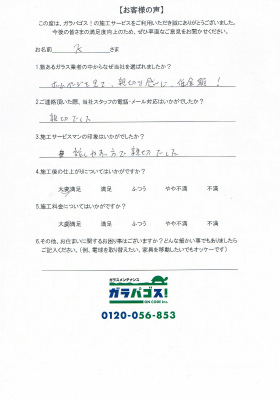 【お客様の声】
この度は、ガラパゴス！の施工サービスをご利用いただき誠にありがとうございました。
今後の皆さまの満足度向上のため、ぜひ率直なご意見をお聞かせください。
お名前 K さま
1.数あるガラス業者の中からなぜ当社を選ばれましたか？
ホームページを見て、親切な感じ、低金額！
2.ご連絡頂いた際、当社スタッフの電話・メール対応はいかがでしたか？
親切でした
3.施工サービスマンの印象はいかがでしたか？
話しやすい方で親切でした
4.施工後の仕上がりについてはいかがですか？
大変満足 満足 ふつう やや不満 不満
5.施工料金についてはいかがですか？
大変満足 満足 ふつう やや不満 不満
6.その他、お住まいに関するお困り事はございますか？どんな細かい事でもありましたら
ご記入ください。（例、電球を取り替えたい、家具を移動したいでもオッケーです）
ガラスメンテナンス
ガラパゴス！
ON COM Inc.
0120-056-853